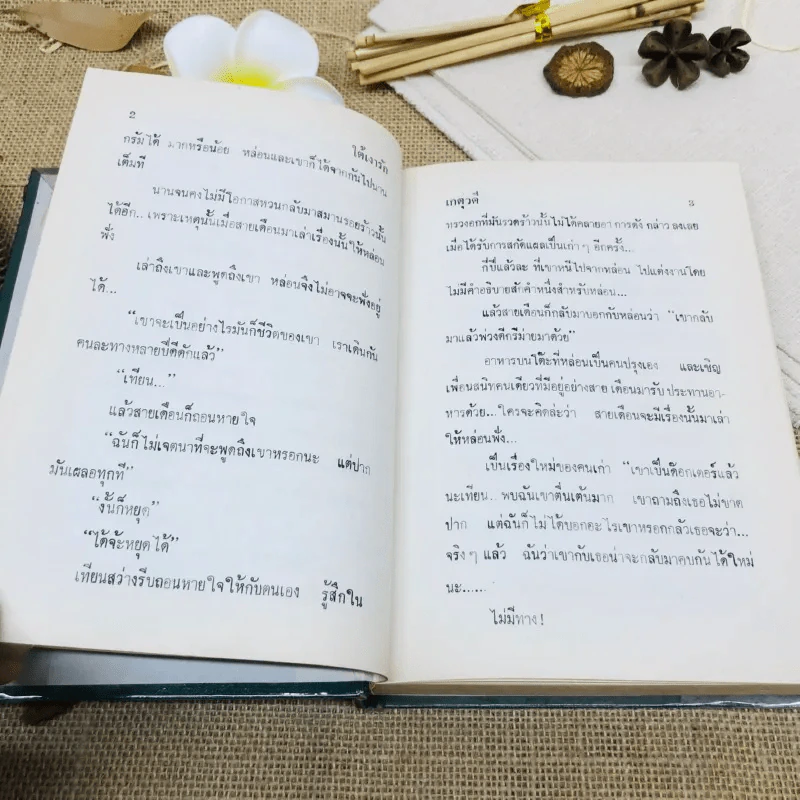 2
ใต้เงารัก
กรัมได้ มากหรือน้อย หล่อนและเขาก็ได้จากกันไปนาน
เต็มที
นานจนคงไม่มีโอกาสหวนกลับมาสมานรอยร้าวนั้น
ได้อีก.. เพราะเหตุนั้นเมื่อสายเดือนมาเล่าเรื่องนั้นให้หล่อน
ฟัง
เล่าถึงเขาและพูดถึงเขา หล่อนจึงไม่อาจจะฟังอยู่
ได้...
“เขาจะเป็นอย่างไรมันก็ชีวิตของเขา เราเดินกัน
คนละทางหลายปีดีดักแล้ว”
“เทียน...”
แล้วสายเดือนก็ถอนหายใจ
“ฉันก็ไม่เจตนาที่จะพูดถึงเขาหรอกนะ แต่ปาก
มันเผลอทุกที”
“งั้นก็หยุด”
“ได้จ้ะหยุดได้”
เทียนสว่างรีบถอนหายใจให้กับตนเอง รู้สึกใน
เกตุวดี
3
ทรวงอกที่มันรวดร้าวนั้นไม่ได้คลายอาการดังกล่าวลงเลย
เมื่อได้รับการสกัดแผลเป็นเก่าๆ อีกครั้ง...
กี่ปีแล้วล่ะ ที่เขาหนีไปจากหล่อน ไปแต่งงานโดย
ไม่มีคำอธิบายสักคำหนึ่งสำหรับหล่อน...
แล้วสายเดือนก็กลับมาบอกกับหล่อนว่า “เขากลับ
มาแล้วพ่วงดีกรีม่ายมาด้วย”
อาหารบนโต๊ะที่หล่อนเป็นคนปรุงเอง และเชิญ
เพื่อนสนิทคนเดียวที่มีอยู่อย่างสายเดือนมารับประทานอา-
หารด้วย... ใครจะคิดล่ะว่า สายเดือนจะมีเรื่องนั้นมาเล่า
ให้หล่อนฟัง...
เป็นเรื่องใหม่ของคนเก่า “เขาเป็นด๊อกเตอร์แล้ว
นะเทียน... พบฉันเขาตื่นเต้นมาก เขาถามถึงเธอไม่ขาด
ปาก แต่ฉันก็ไม่ได้บอกอะไรเขาหรอกกลัวเธอจะว่า...
จริงๆ แล้ว ฉันว่าเขากับเธอน่าจะกลับมาคบกันได้ใหม่
นะ......
ไม่มีทาง!